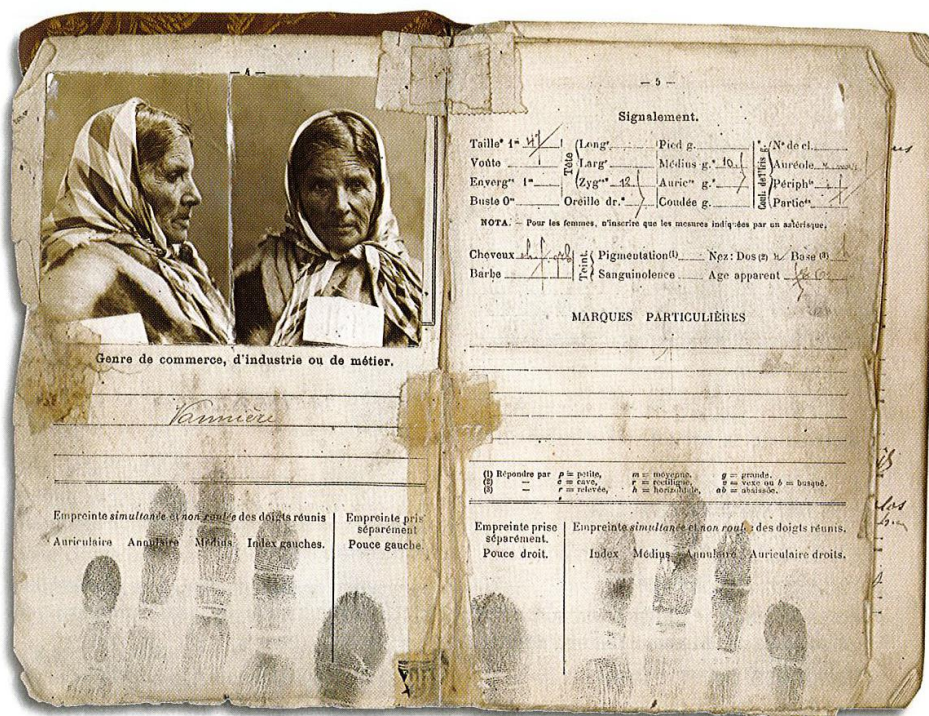 — 4 —
Genre de commerce, d'industrie ou de métier.
Vannière
Empreinte simultanée et non roulée des doigts réunis
Auriculaire Annulaire Médius Index gauches.
Empreinte prise
séparément
Pouce gauche.
— 5 —
Signalement.
Taille* 1m 47
Voûte
Envergre 1m
Buste 0m
Tête
Longr
Largr
Zygue 12
Oreille dr.*
Pied g.
Médius g.* 10
Auricre g.*
Coudée g.
Coul. de l'Iris g.
No de cl.
Auréole
Périphie
Partices
NOTA. — Pour les femmes, n'inscrire que les mesures indiquées par un astérisque.
Cheveux
Barbe
Teint
Pigmentation (1)
Sanguinolence
Nez : Dos (2) Base (3)
Age apparent
MARQUES PARTICULIÈRES
(1) Répondre par p = petite, m = moyenne, g = grande.
(2) — c = cave, r = rectiligne, v = vexe ou b = busqué.
(3) — r = relevée, h = horizontale, ab = abaissée.
Empreinte prise
séparément.
Pouce droit.
Empreinte simultanée et non roulée des doigts réunis.
Index Médius Annulaire Auriculaire droits.